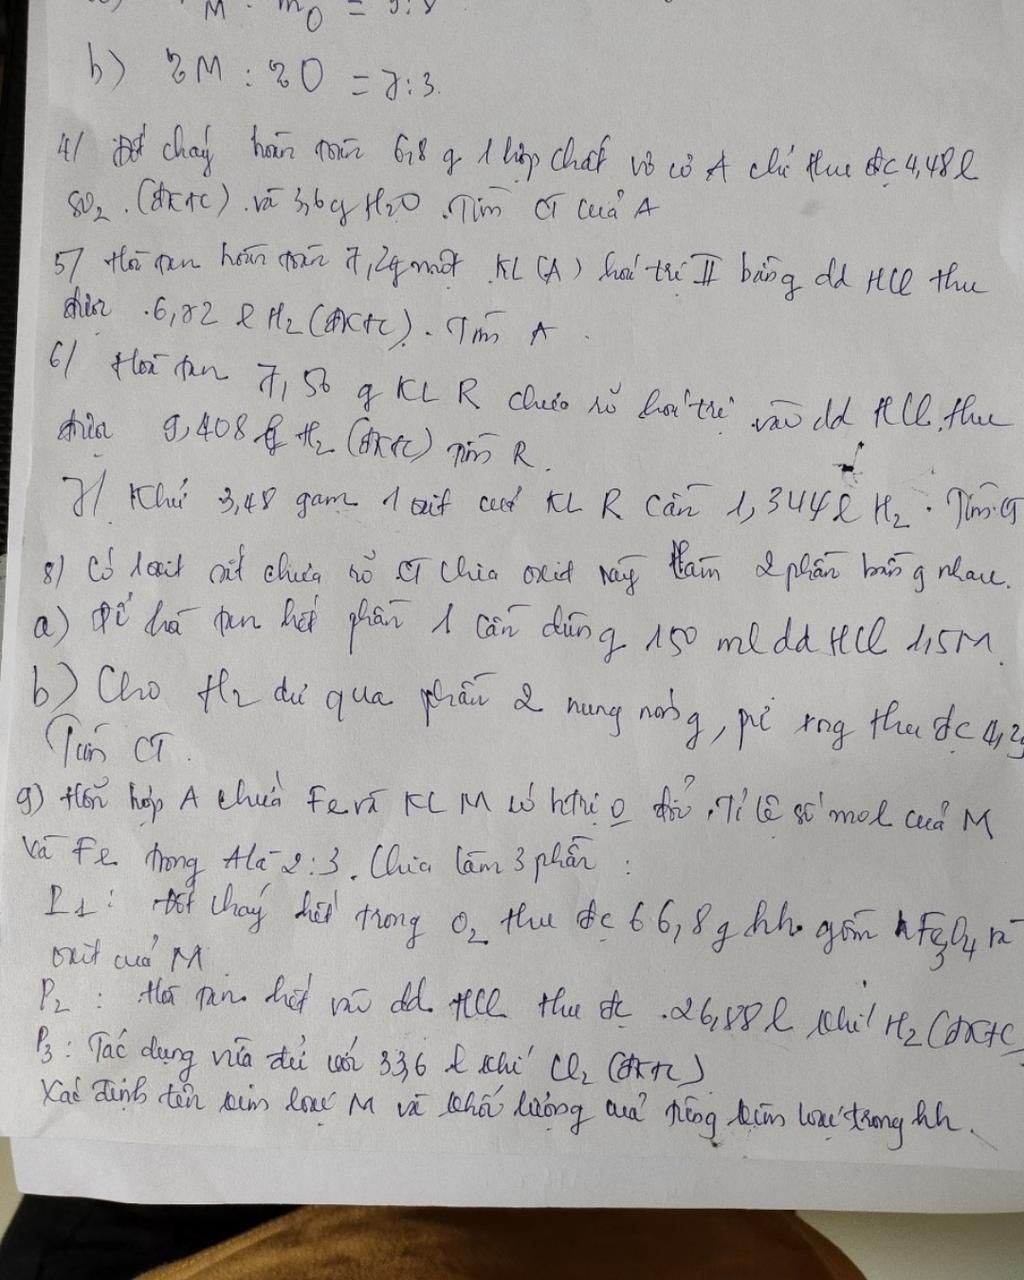 M : mO = 9:8
b) %M : %O = 7:3.
4/ Đốt cháy hoàn toàn 6,8 g 1 hợp chất vô cơ A chỉ thu đc 4,48l
SO2 . (đktc) . và 3,6g H2O . Tìm CT của A
5/ Hoà tan hoàn toàn 7,2g một KL (A) hoá trị II bằng dd HCl thu
được .6,72 l H2 (đktc) . Tìm A .
6/ Hoà tan 7,56 g KL R chưa rõ hoá trị vào dd HCl, thu
được 9,408 l H2 (đktc) Tìm R.
7/ Khử 3,48 gam 1 oxit của KL R cần 1,344l H2 . Tìm CT
8/ Có 1 oxit sắt chưa rõ CT chia oxit này làm 2 phần bằng nhau.
a) Để hoà tan hết phần 1 cần dùng 150 ml dd HCl 1,5M.
b) Cho H2 dư qua phần 2 nung nóng, pứ xong thu đc 4,2g
Tìm CT.
9) Hỗn hợp A chứa Fe và KL M có htrị o đổi . Tỉ lệ số mol của M
và Fe trong A là 2:3. Chia làm 3 phần :
P1 : Đốt cháy hết trong O2 thu đc 66,8g hh gồm Fe3O4 và
oxit của M
P2 : Hoà tan hết vào dd HCl thu đc .26,88 l khí H2 (đktc)
P3 : Tác dụng vừa đủ với 33,6 l khí Cl2 (đktc)
Xác định tên kim loại M và khối lượng của từng kim loại trong hh.